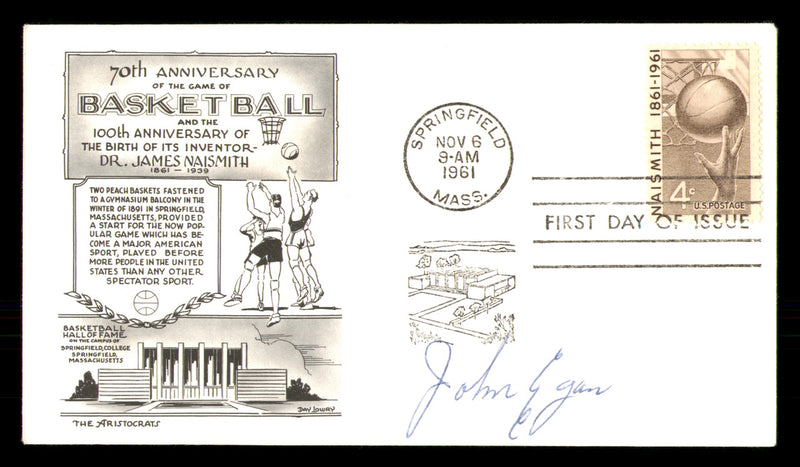 70th ANNIVERSARY
OF THE GAME OF
BASKETBALL
AND THE
100th ANNIVERSARY OF
THE BIRTH OF ITS INVENTOR-
DR. JAMES NAISMITH
1861 - 1939
TWO PEACH BASKETS FASTENED
TO A GYMNASIUM BALCONY IN THE
WINTER OF 1891 IN SPRINGFIELD,
MASSACHUSETTS, PROVIDED
A START FOR THE NOW POP-
ULAR GAME WHICH HAS BE-
COME A MAJOR AMERICAN
SPORT, PLAYED BEFORE
MORE PEOPLE IN THE UNITED
STATES THAN ANY OTHER
SPECTATOR SPORT.
BASKETBALL
HALL OF FAME
ON THE CAMPUS OF
SPRINGFIELD, COLLEGE
SPRINGFIELD,
MASSACHUSETTS
DAY LOWRY
THE ARISTOCRATS
SPRINGFIELD
NOV 6
9-AM
1961
MASS.
NAISMITH 1861-1961
4c
U.S. POSTAGE
FIRST DAY OF ISSUE
John Egan